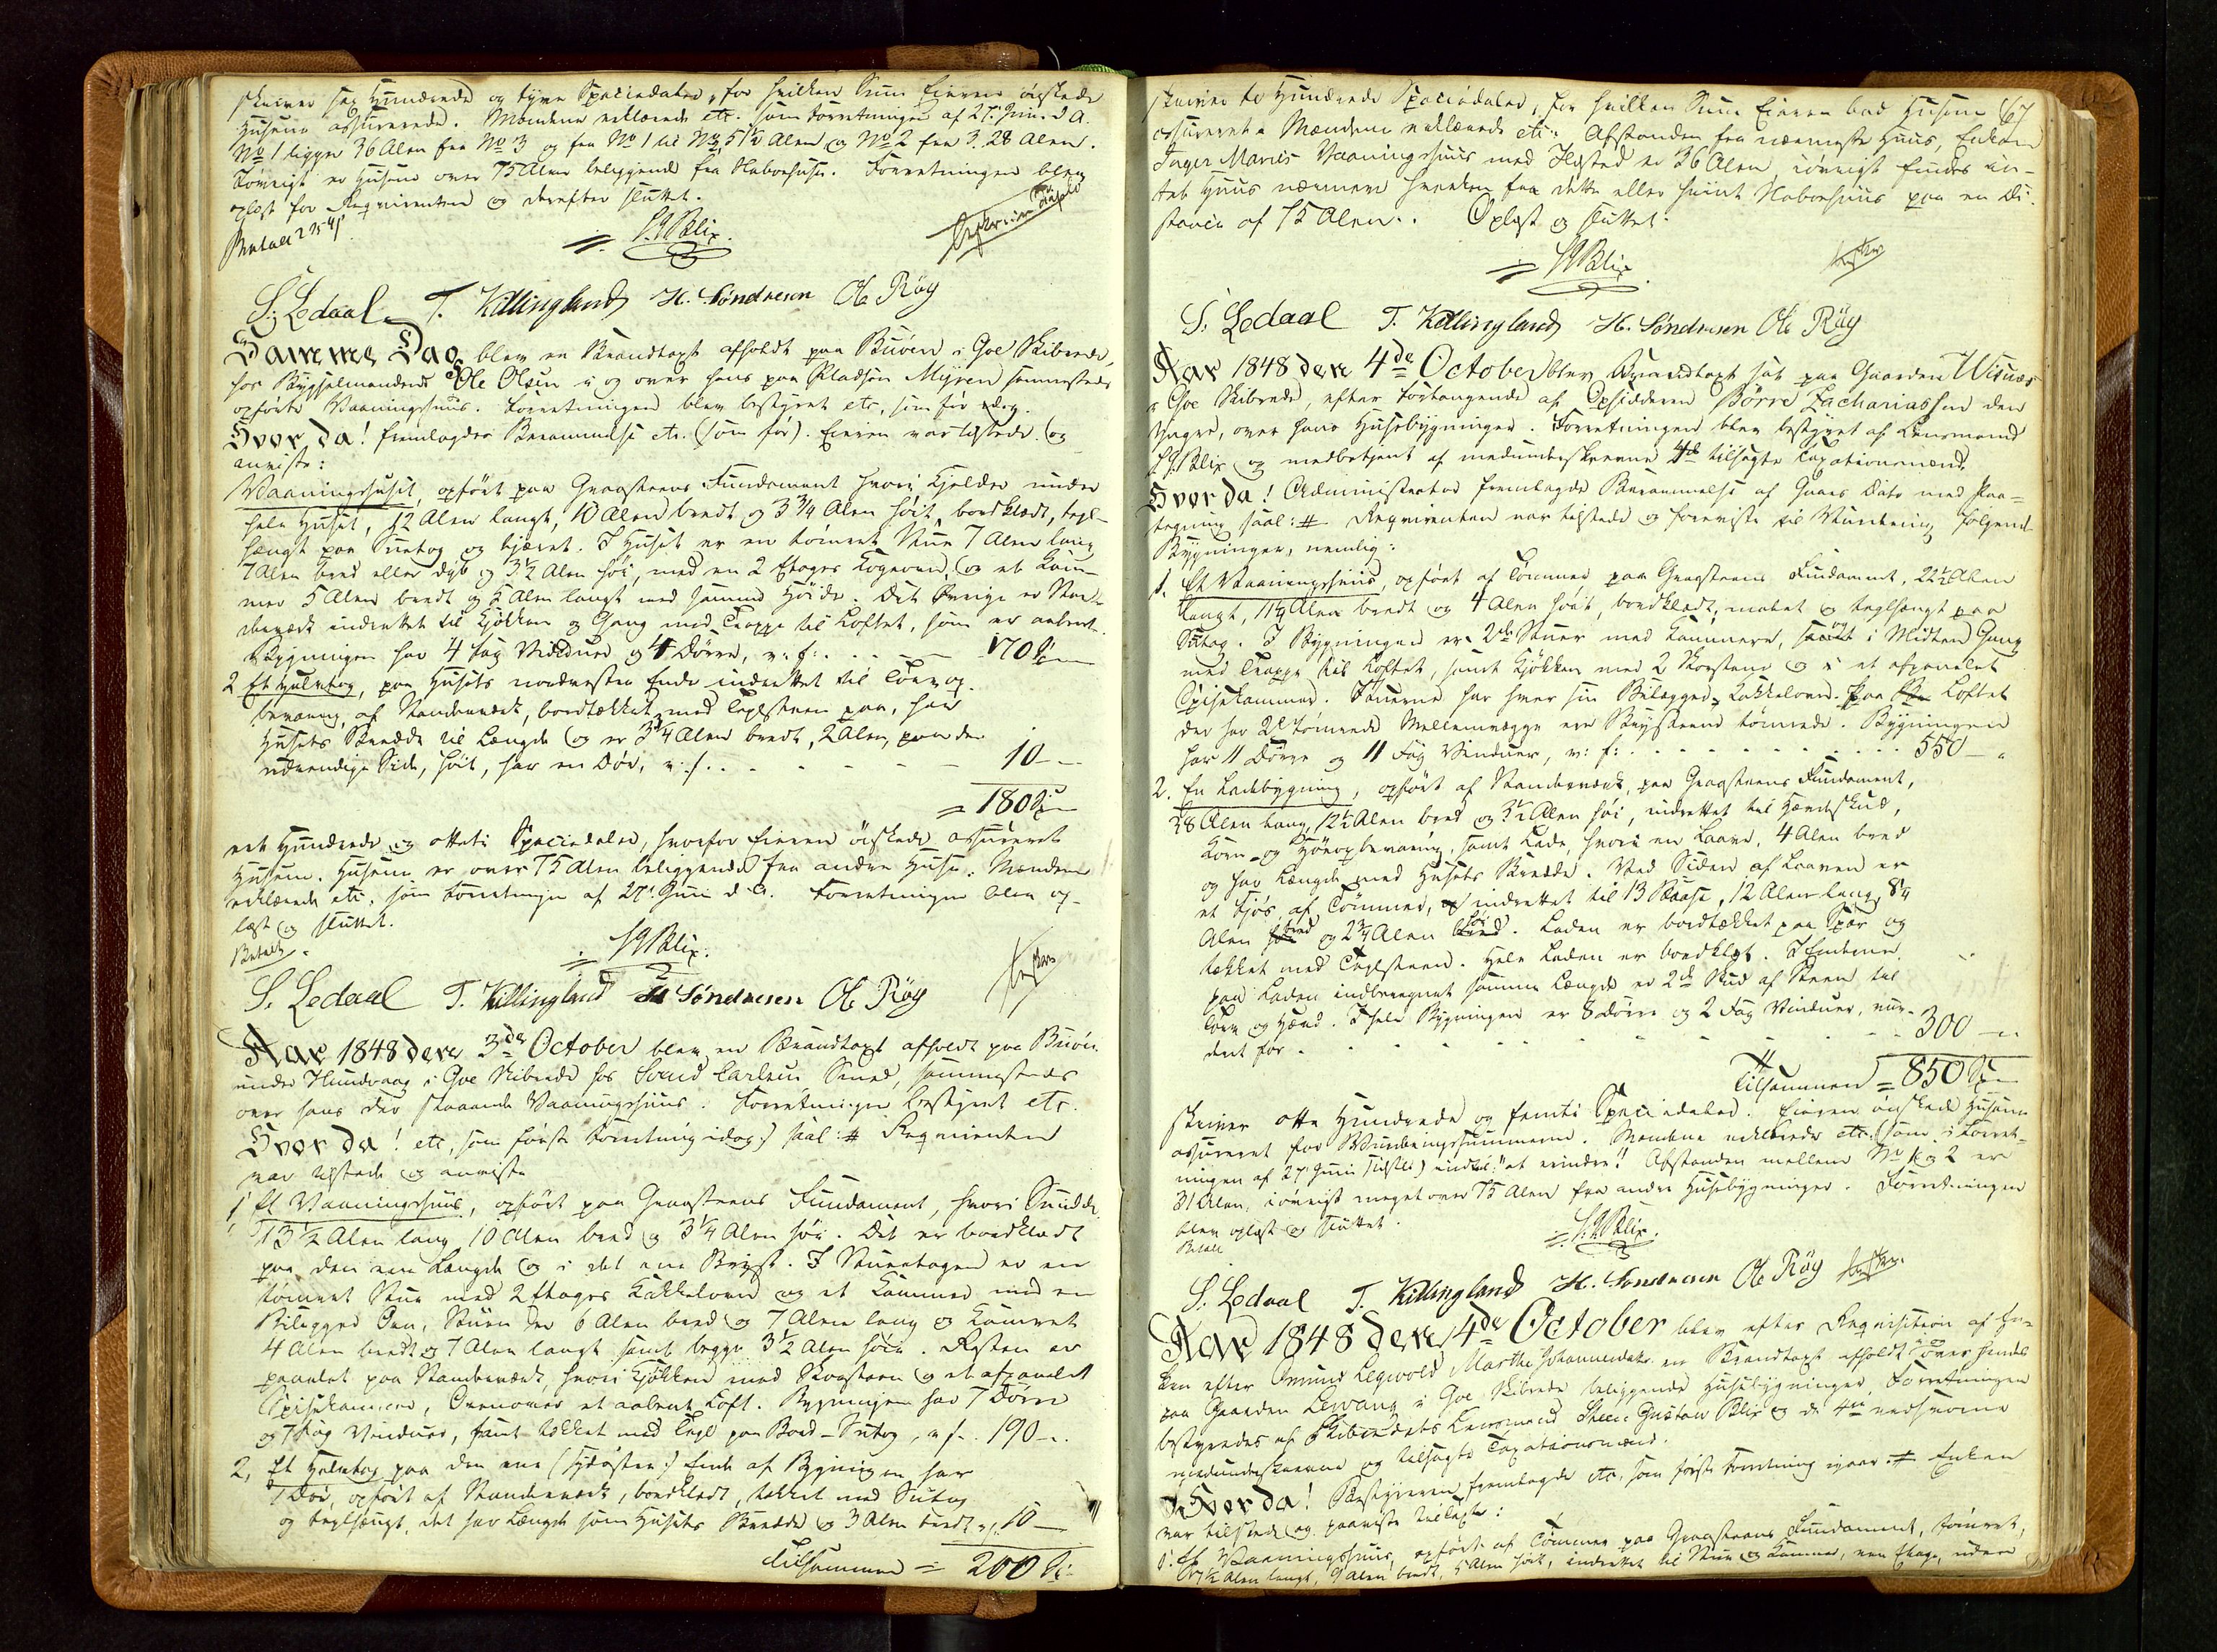 skriver sex Hundrede og tyve Speciedaler, for hvilken Sum Eieren ønskede
Husene assurerede. Mændene erklærede etc. som Forretningen af 27. Juni d. A.
No 1 ligger 36 Alen fra No 3 og fra No 1 til No 2, 51½ Alen og No 2 fra 3. 28 Alen.
Forøvrigt er Husene over 75 Alen beliggende fra Nabohuse. Forretningen blev
oplæst for Requirenten og derefter sluttet.
Betalt
S. G. Blix.
S. Ledaal T. Killingland H. Søndresen Ole Røy
Samme Dag blev en Brandtaxt afholdt paa Buøen i Goe Skibrede,
hos Bygselmanden Ole Olsen i og over hans paa Pladsen Myren sammesteds
opførte Vaaningshuus. Forretningen blev bestyret etc. som før idag.
Hvor da! fremlagdes Berammelse etc. (som før). Eieren var tilstede og
anviste:
Vaaningshuset, opført paa Graasteens Fundament hvori Kjelder under
hele Huset, 12 Alen langt, 10 Alen bredt og 3¾ Alen høit, bordklædt, tegl-
hængt paa Sutag og tjæret. I Huset er en tømret Stue 7 Alen lang
7 Alen bred eller dyb og 3½ Alen høi, med en 2 Etages Kogeovn, og et Kam-
mer 5 Alen bredt og 5 Alen langt med samme Høide. Det Øvrige er Stav-
værk indrettet til Kjøkken og Gang med Trappe til Loftet, som er aabent.
Bygningen har 4 Fag Vinduer og 4 Dørre, v: f: . . . 170 Sp
2 Et Halvtag, paa Husets nordvestre Ende indrettet til Tørvop-
bevaring, af Standerværk, bordtækket med Teglsteen paa, har
Husets Bredde til Længde og er 3¼ Alen bredt, 2 Alen, paa den
udvendige Side, høit, har en Dør, v: f. . . 10 –
= 180 Sp
eet Hundrede og otteti Speciedaler, hvorfor Eieren ønskede assureret
Husene. Husene er over 75 Alen beliggende fra andre Huse. Mændene
erklærede etc. som Forretningen af 27. Juni d. A. Forretningen blev op-
læst og sluttet.
Betalt
S. G. Blix.
S. Ledaal T. Killingland H. Søndresen Ole Røy
Aar 1848 den 3de October blev en Brandtaxt afholdt paa Buøen
under Hundvaag i Goe Skibrede hos Svend Carlsen Smed, sammesteds
over hans der staaende Vaaningshuus. Forretningen bestyret etc.
Hvor da! etc, som første Forretning idag) saal: # Requirenten
var tilstede og anviste
1, Et Vaaningshuus, opført paa Graasteens Fundament, hvori Smidde
13½ Alen lang 10 Alen bred og 3¼ Alen høi. Det er bordklædt
paa den ene Længde og i det ene Bryst. I Stueetagen er en
tømret Stue med 2 Etages Kakkelovn og et Kammer med en
Bilægger Ovn, Stuen er 6 Alen bred og 7 Alen lang og Kamret
4 Alen bredt og 7 Alen langt samt begge 3½ Alen høie. Resten er
panelet paa Standerværk, hvori Kjøkken med Skorsteen og et afpanelet
Spisekammer, Ovenover et aabent Loft. Bygningen har 7 Dørre
og 7 Fag Vinduer, samt tækket med Tegl paa Bord-Sutag, v f. . 190 –
2, Et Halvtag paa den ene (sydøstre) Ende af Bygningen har
1 Dør, opført af Standerværk, bordklædt, tækket med Sutag
og teglhængt, det har Længde som Husets Bredde og 3 Alen bredt v f. 10 –
Tilsammen = 200 Sp
67
skriver to Hundrede Speciedaler, for hvilken Sum Eieren bad Husene
assureret. Mændene erklærede etc. Afstanden fra nærmeste Huus, Enken
Inger Marias Vaaningshuus med Ildsted er 36 Alen, iøvrigt findes in-
tet Huus nærmere hverken fra dette eller hiint Nabohuus paa en Di-
stance af 75 Alen. Oplæst og sluttet.
S G Blix
S. Ledaal T. Killingland H. Søndresen Ole Røy
Aar 1848 den 4de October blev Brandtaxt sat paa Gaarden Wisnæs
i Goe Skibrede, efter Forlangende af Opsidderen Børre Zachariassen den
Yngre, over hans Huusbygninger. Forretningen blev bestyret af Lensmand
S G. Blix og medbetjent af medunderskrevne 4de tilsagte Taxationsmænd.
Hvor da! Administrator fremlagde Berammelse af Gaars Dato med Paa-
tegning saal: # Requirenten var tilstede og foreviste til Vurdering følgende
Bygninger, nemlig:
1. Et Vaaningshuus, opført af Tømmer paa Graasteens Fundament, 22½ Alen
langt, 11¼ Alen bredt og 4 Alen høit, bordklædt, malet og teglhængt paa
Sutag. I Bygningen er 2de Stuer med Kammere, samt i Midten Gang
med Trappe til Loftet, samt Kjøkken med 2 Skorstene og et afpanelet
Spisekammer. Stuerne har hver sin Bilægger-Kakkelovn. Paa Loftet
der har 2de tømrede Mellemvægge ere Brysterne tømrede. Bygningen
har 11 Dørre og 11 Fag Vinduer, v: f: . . . . 550 – "
2. En Ladebygning, opført af Standerværk, paa Graasteens Fundament,
38 Alen lang, 12½ Alen bred og 3½ Alen høi, indrettet til Hæsteskud,
Korn- og Høeopbevaring, samt Lade, hvori en Laave, 4 Alen bred
og har Længde med Husets Bredde. Ved Siden af Laaven er
et Fjøs af Tømmer, indrettet til 13 Baase, 12 Alen lang, 8¼
Alen bred og 2¾ Alen høi. Laden er bordtækket paa Spær og
tækket med Teglsteen. Hele Laden er bordklædt. I Enderne
paa Laden indberegnet samme Længde er 2de Skud af Steen til
Tørv og Hæud. I hele Bygningen er 8 Dørre og 2 Fag Vinduer, vur-
deret for . . . . . . . 300 – "
Tilsammen = 850 Sp
skriver otte Hundrede og femti Speciedaler. Eieren ønskede Husene
assureret for Vurderingssummerne. Mændene erklærede etc. (som i Forret-
ningen af 27 Juni sidstl) indtil: "at erindre". Afstanden mellem No 1 og 2 er
31 Alen, iøvrigt meget over 75 Alen fra andre Huusbygninger. Forretningen
blev oplæst og sluttet.
Betalt
S. G Blix.
S. Ledaal T. Killingland H. Søndresen Ole Røy
Aar 1848 den 4de October blev efter Requisition af En-
ken efter Omund Legwold Marthe Johannesdatr. en Brandtaxt afholdt i og over hendes
paa Gaarden Lewang i Goe Skibrede beliggende Huusbygninger. Forretningen
bestyredes af Skibredets Lensmand Steen Gustaw Blix og de 4re edsvorne
medunderskrevne og tilsagte Taxationsmænd.
Hvor da! Bestyreren fremlagde etc. som første Forretning igaar # Enken
var tilstede og paaviste
1. Et Vaaningshuus, opført af Tømmer paa Graasteens Fundament, tømret,
17½ Alen langt, 9 Alen bredt, 5 Alen høit, indrettet til Stue og Kammer, een Etage, uden